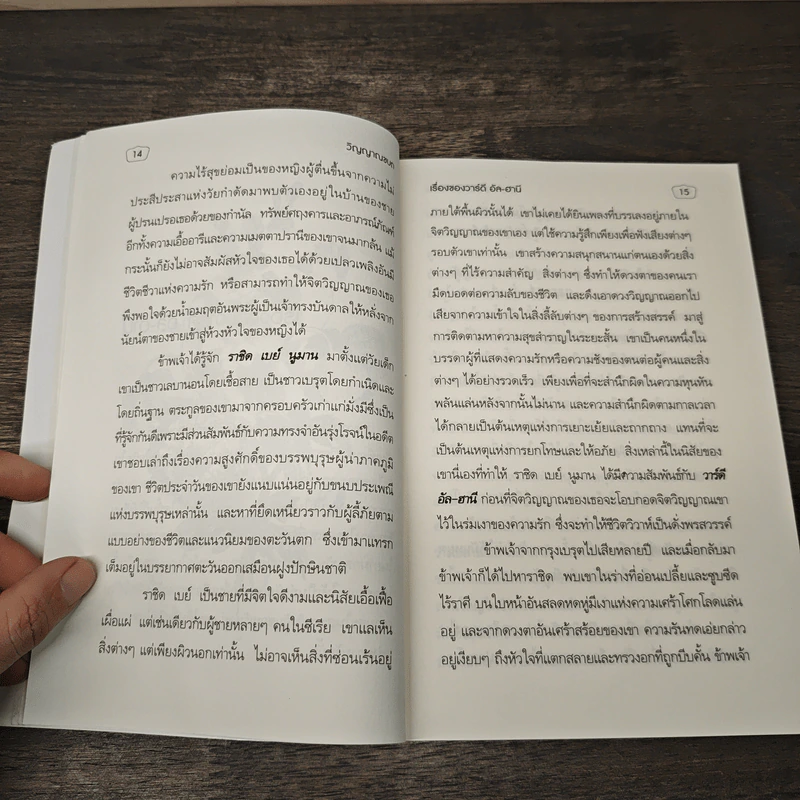 14
วิญญาณขบถ
ความไร้สุขย่อมเป็นของหญิงผู้ตื่นขึ้นจากความไม่
ประสีประสาแห่งวัยกำดัดมาพบตัวเองอยู่ในบ้านของชาย
ผู้ปรนเปรอเธอด้วยของกำนัล ทรัพย์ศฤงคารและอาภรณ์ภัณฑ์
อีกทั้งความเอื้ออารีและความเมตตาปรานีของเขาจนมากล้น แม้
กระนั้นก็ยังไม่อาจสัมผัสหัวใจของเธอได้ด้วยเปลวเพลิงอันมี
ชีวิตชีวาแห่งความรัก หรือสามารถทำให้จิตวิญญาณของเธอ
พึงพอใจด้วยน้ำอมฤตอันพระผู้เป็นเจ้าทรงบันดาลให้หลั่งจาก
นัยน์ตาของชายเข้าสู่ห้วงหัวใจของหญิงได้
ข้าพเจ้าได้รู้จัก ราชิด เบย์ นูมาน มาตั้งแต่วัยเด็ก
เขาเป็นชาวเลบานอนโดยเชื้อสาย เป็นชาวเบรุตโดยกำเนิดและ
โดยถิ่นฐาน ตระกูลของเขามาจากครอบครัวเก่าแก่มั่งมีซึ่งเป็น
ที่รู้จักกันดีเพราะมีส่วนสัมพันธ์กับความทรงจำอันรุ่งโรจน์ในอดีต
เขาชอบเล่าถึงเรื่องความสูงศักดิ์ของบรรพบุรุษผู้น่าภาคภูมิ
ของเขา ชีวิตประจำวันของเขายังแนบแน่นอยู่กับขนบประเพณี
แห่งบรรพบุรุษเหล่านั้น และหาที่ยึดเหนี่ยวราวกับผู้ลี้ภัยตาม
แบบอย่างของชีวิตและแนวนิยมของตะวันตก ซึ่งเข้ามาแทรก
เต็มอยู่ในบรรยากาศตะวันออกเสมือนฝูงปักษินชาติ
ราชิด เบย์ เป็นชายที่มีจิตใจดีงามและนิสัยเอื้อเฟื้อ
เผื่อแผ่ แต่เช่นเดียวกับผู้ชายหลายๆ คนในซีเรีย เขาแลเห็น
สิ่งต่างๆ แต่เพียงผิวนอกเท่านั้น ไม่อาจเห็นสิ่งที่ซ่อนเร้นอยู่
เรื่องของวาร์ดี อัล-ฮานี
15
ภายใต้พื้นผิวนั้นได้ เขาไม่เคยได้ยินเพลงที่บรรเลงอยู่ภายใน
จิตวิญญาณของเขาเอง แต่ใช้ความรู้สึกเพียงเพื่อฟังเสียงต่างๆ
รอบตัวเขาเท่านั้น เขาสร้างความสนุกสนานแก่ตนเองด้วยสิ่ง
ต่างๆ ที่ไร้ความสำคัญ สิ่งต่างๆ ซึ่งทำให้ดวงตาของคนเรา
มืดบอดต่อความลับของชีวิต และดึงเอาดวงวิญญาณออกไป
เสียจากความเข้าใจในสิ่งลี้ลับต่างๆ ของการสร้างสรรค์ มาสู่
การติดตามหาความสุขสำราญในระยะสั้น เขาเป็นคนหนึ่งใน
บรรดาผู้ที่แสดงความรักหรือความชังของตนต่อผู้คนและสิ่ง
ต่างๆ ได้อย่างรวดเร็ว เพียงเพื่อที่จะสำนึกผิดในความหุนหัน
พลันแล่นหลังจากนั้นไม่นาน และความสำนึกผิดตามกาลเวลา
ได้กลายเป็นต้นเหตุแห่งการเยาะเย้ยและถากถาง แทนที่จะ
เป็นต้นเหตุแห่งการยกโทษและให้อภัย สิ่งเหล่านี้ในนิสัยของ
เขานี่เองที่ทำให้ ราชิด เบย์ นูมาน ได้มีความสัมพันธ์กับ วาร์ดี
อัล-ฮานี ก่อนที่จิตวิญญาณของเธอจะโอบกอดจิตวิญญาณเขา
ไว้ในร่มเงาของความรัก ซึ่งจะทำให้ชีวิตวิวาห์เป็นดั่งพรสวรรค์
ข้าพเจ้าจากกรุงเบรุตไปเสียหลายปี และเมื่อกลับมา
ข้าพเจ้าก็ได้ไปหาราชิด พบเขาในร่างที่อ่อนเปลี้ยและซูบซีด
ไร้ราศี บนใบหน้าอันสลดหดหู่มีเงาแห่งความเศร้าโศกโลดแล่น
อยู่ และจากดวงตาอันเศร้าสร้อยของเขา ความรันทดเอ่ยกล่าว
อยู่เงียบๆ ถึงหัวใจที่แตกสลายและทรวงอกที่ถูกบีบคั้น ข้าพเจ้า